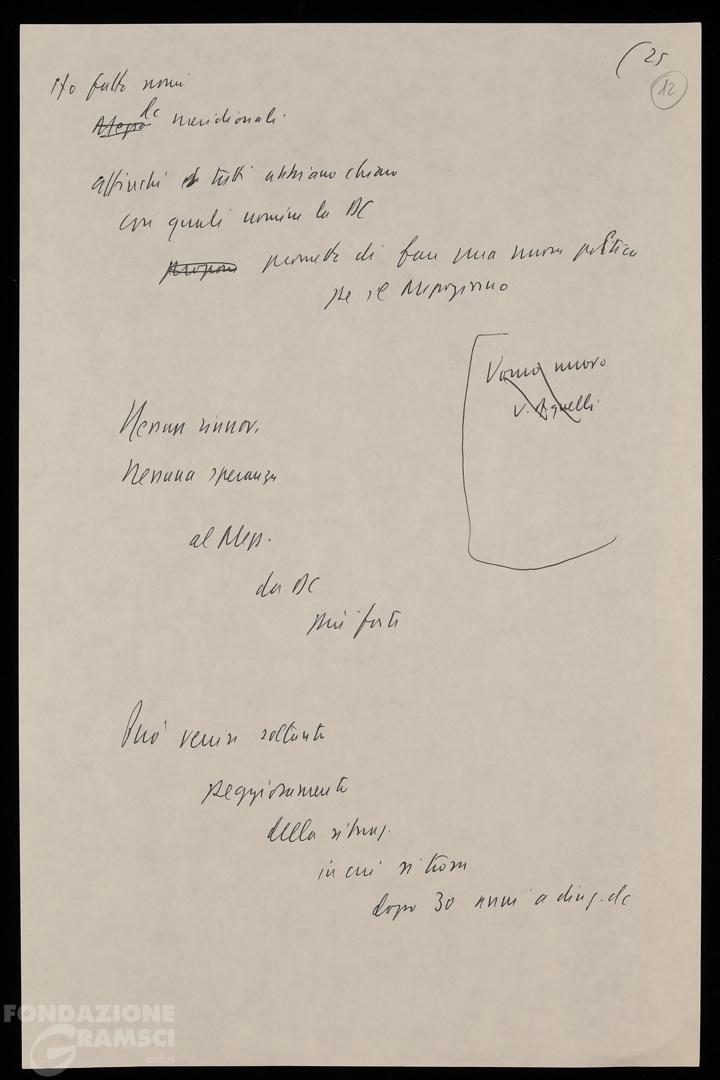 (25
12
Ho fatto nomi
dc
meridionali.
affinché tutti abbiano chiaro
con quali uomini la DC
promette di fare una nuova politica
per il Mezzogiorno
Uomo nuovo
V. Agnelli
Nessun rinnov.
Nessuna speranza
al Mezz.
da DC
più forte
Può venire soltanto
peggioramento
della situaz.
in cui si trova
dopo 30 anni a direz. dc
FONDAZIONE
GRAMSCI
onlus